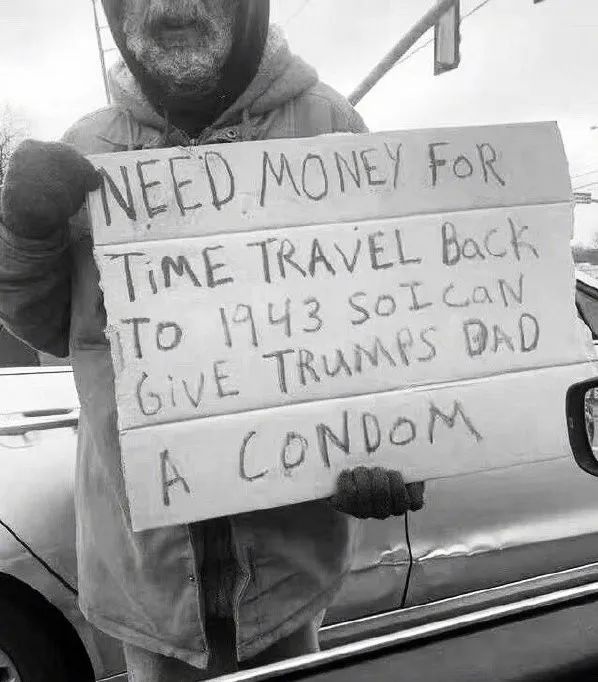 NEED MONEY FOR
TiME TRAVEL BacK
TO 1943 SO I CaN
GiVE TRUMPS DAD
A CONDOM